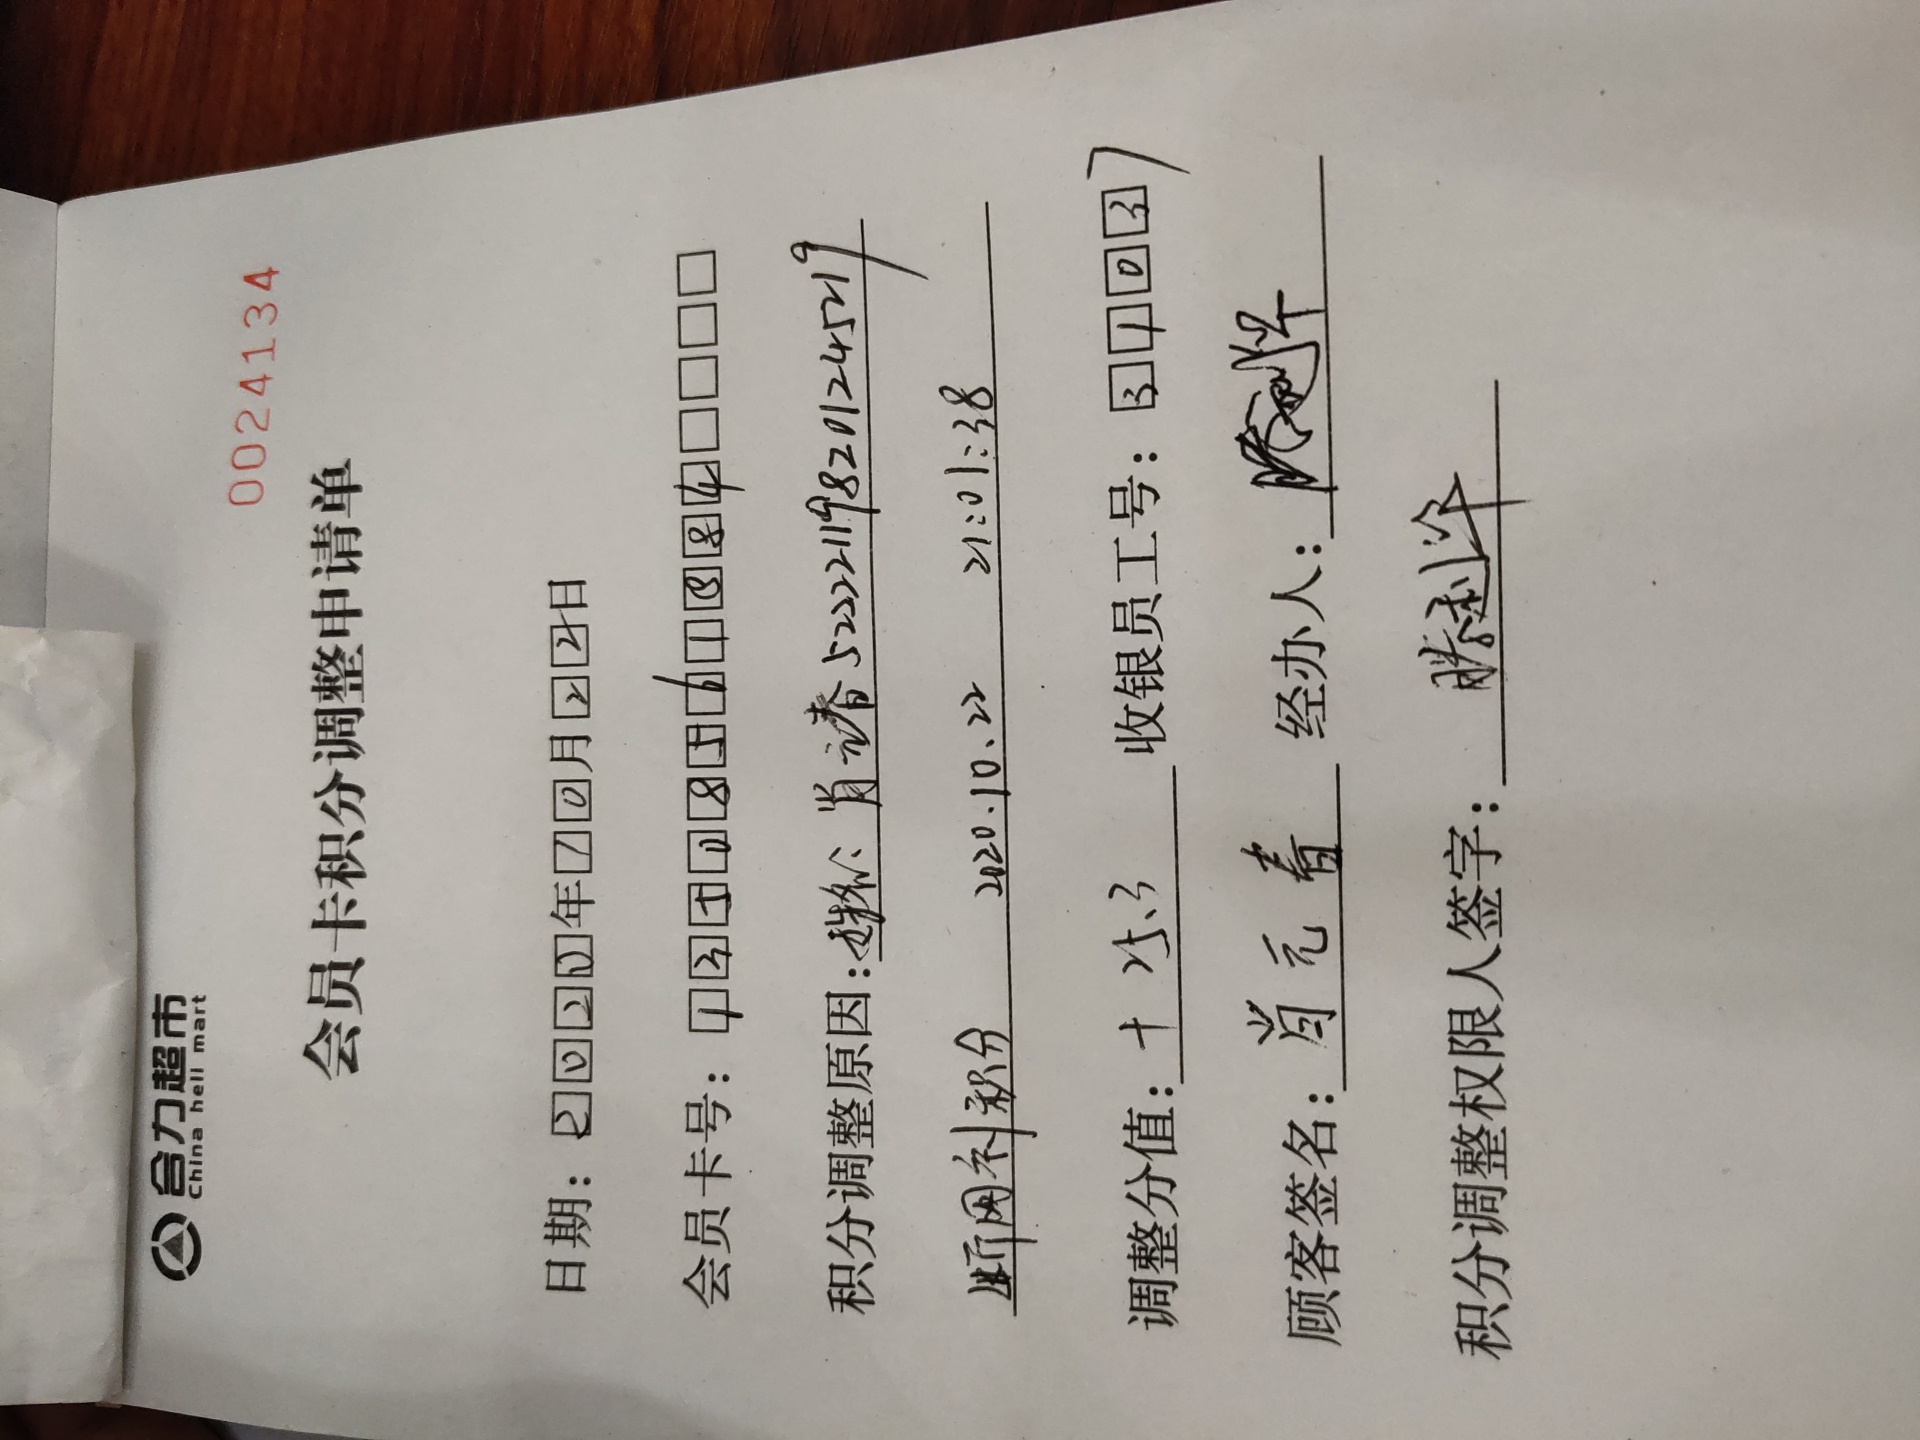 合力超市
China hell mart
00241134
会员卡积分调整申请单
日期：2020年10月22日
会员卡号：13508561884
积分调整原因：肖元春 522221198201245219
断网补积分 2020.10.22 21:01:38
调整分值：+25.3 收银员工号：3103
顾客签名：肖元春 经办人：
积分调整权限人签字：